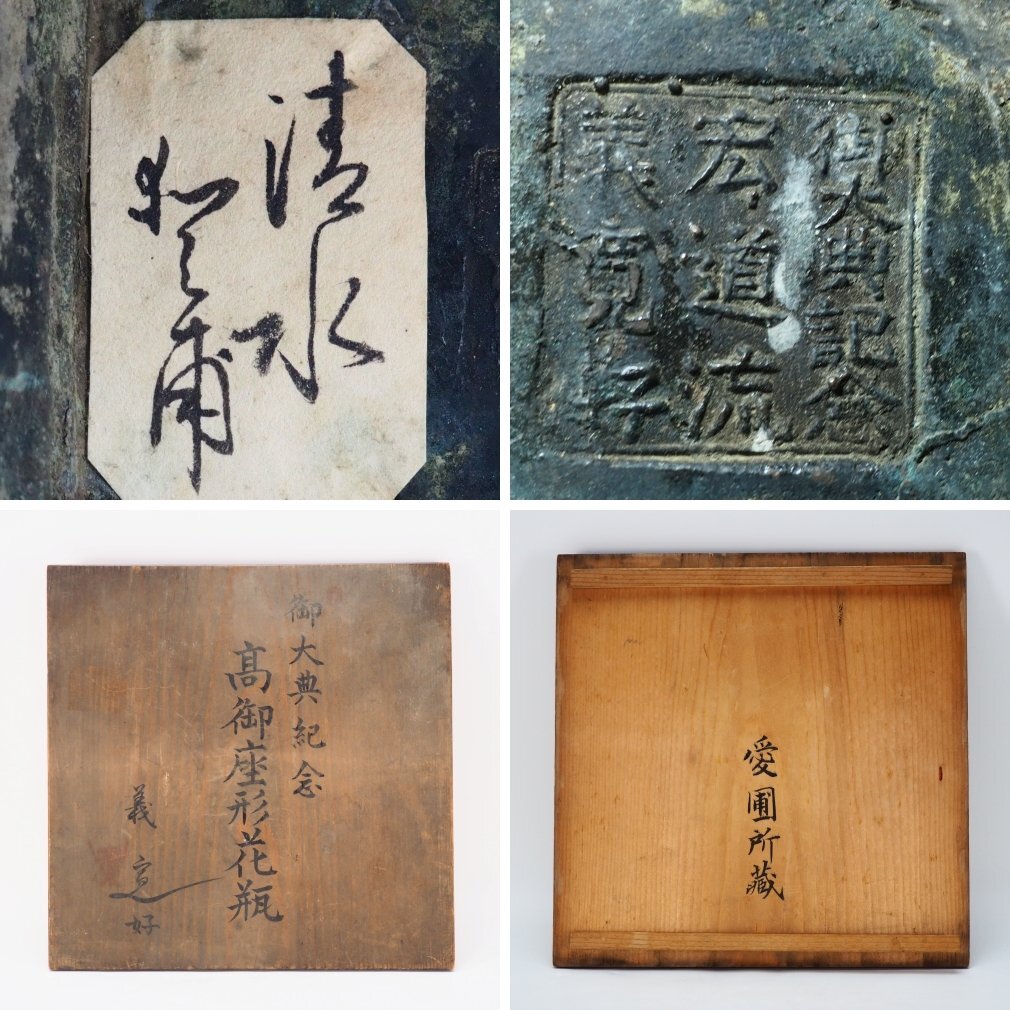 清水
御大典記念
宏道流
義寛好
御大典紀念
髙御座形花瓶
義寛好
愛圃所藏